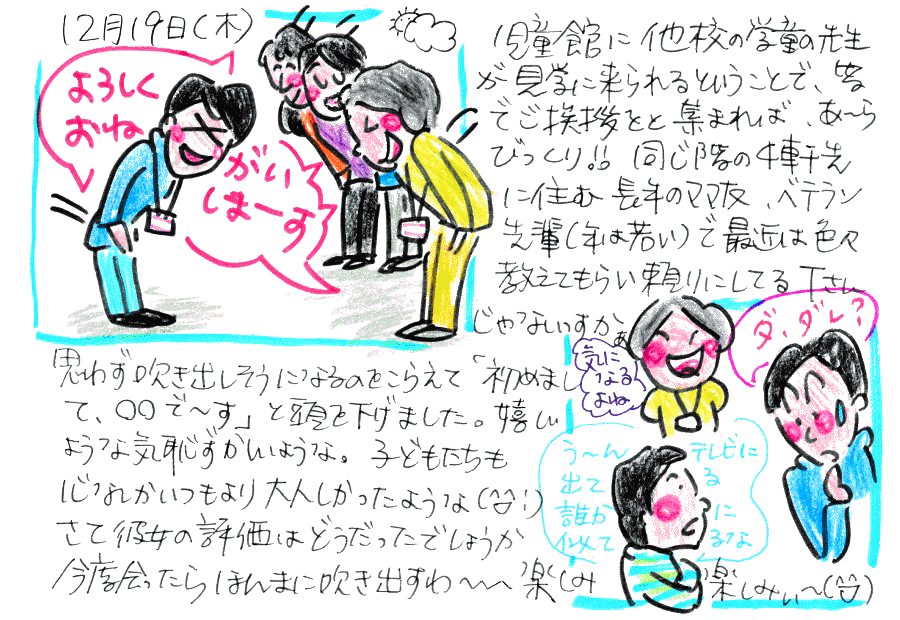 12月19日(木)
よろしく
おね
がい
しまーす
児童館に他校の学童の先生
が見学に来られるということで、皆
でご挨拶をと集まれば、あ〜ら
びっくり!! 同じ階の斜め先
に住む長年のママ友、ベテラン
先輩(年は若い)で最近は色々
教えてもらい頼りにしてる下さん
じゃないすかぁ
思わず吹き出しそうになるのをこらえて「初めまし
て、〇〇で〜す」と頭を下げました。嬉しい
ような気恥ずかしいような。子どもたちも
心なしかいつもより大人しかったような(^^!)
さて彼女の評価はどうだったでしょうか
今度会ったらほんまに吹き出すわ〜〜 楽しみ
楽しみぃ〜(^^)
気に
なる
よね
ダ、ダレ?
う〜ん
テレビに
出てる
誰かに
似てるな